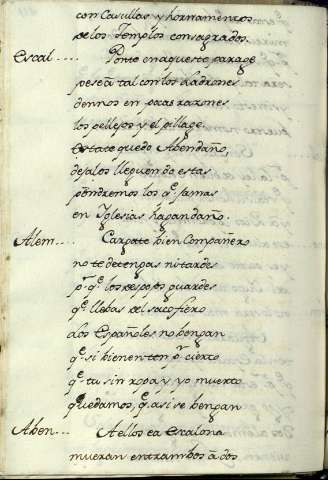 con Casullas y hornamentos
de los Templos consagrados.
Escal.... Ponte en aqueste parage
pese a tal con los Ladrones
dennos en pocas raxones
los pellejos y el pillage.
Estate quedo Abendaño,
dejalos lleguen do estas
pondremos los q̃ jamas
en Iglesias hagan daño.
Alem.... Cargate bien Compañero
no te detengas ni tardes
p.ͬ q̃ los despojos guardes
q̃ llebas del saco fiero
a los Españoles no bengan
q̃ si bienen ten p.ͬ cierto
q̃ tu sin ropa y yo muerto
quedamos, q̃ asi se bengan
Aben... A ellos ea Escalona
mueran entrambos a dos